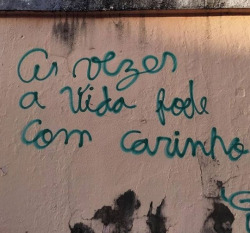 As vezes
a vida fode
com carinho